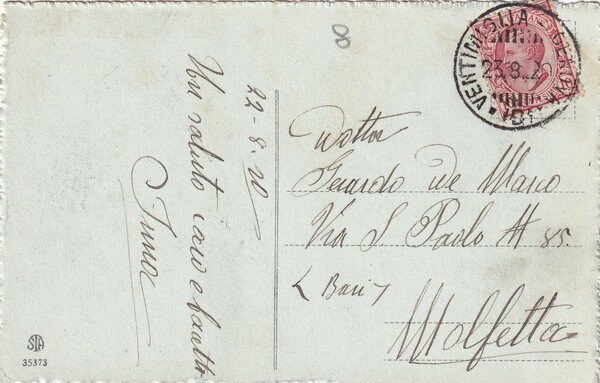 22-8-20
Un saluto caro e
8
VENTIMIGLIA GENOVA
23.8.20
Dottor
Gerardo de Marco
Via S Paolo N 85.
(Bari)
Molfetta
STA
35373